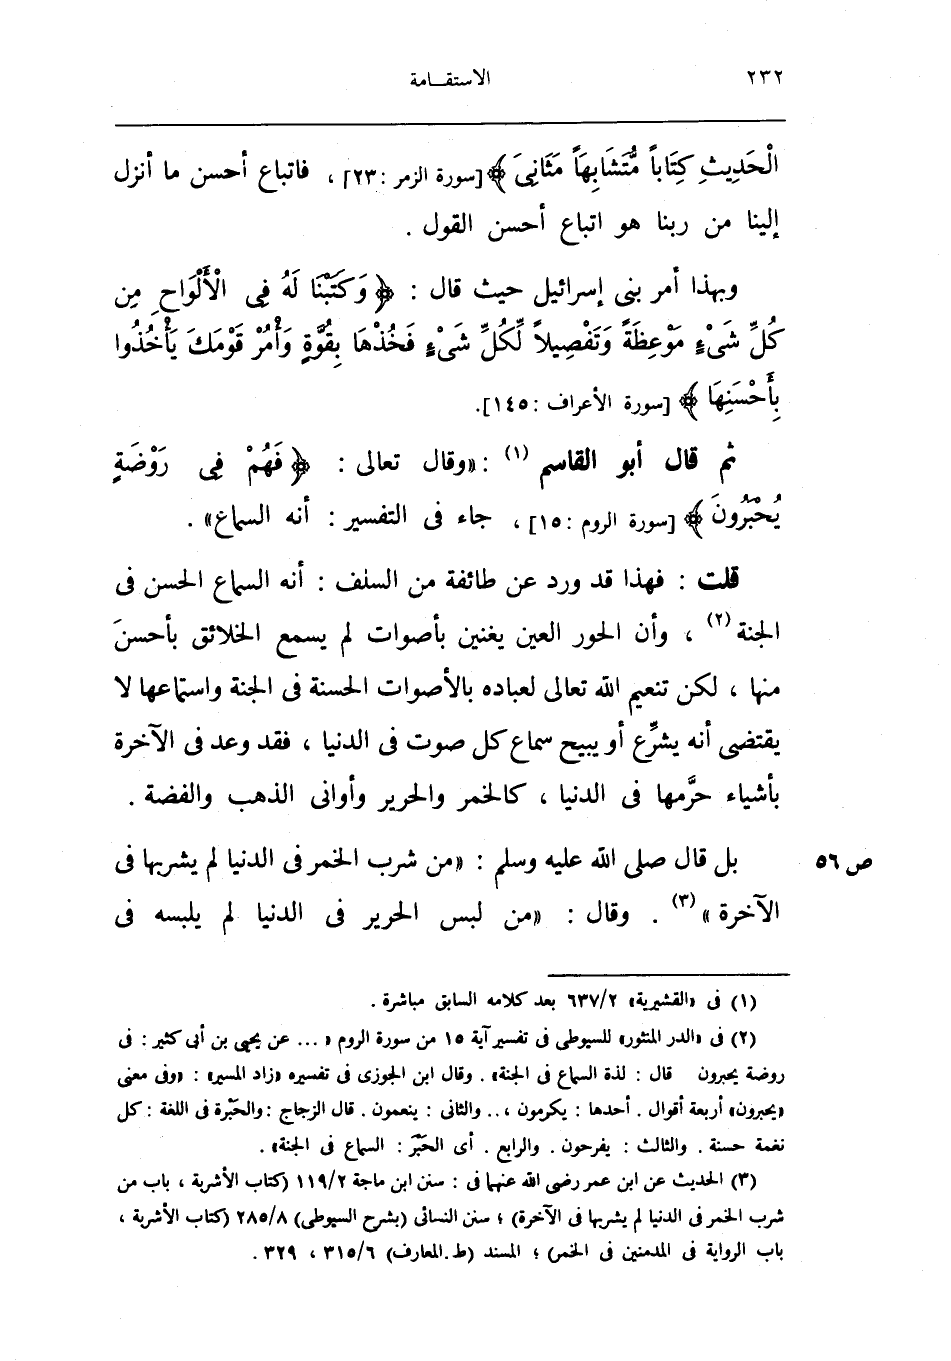 ٢٣٢ الاستقـامة
الْحَدِيثِ كِتَاباً مُّتَشَابِهَاً مَثَانِىَ ﴾ [سورة الزمر :٢٣] ، فاتباع أحسن ما أنزل
إلينا من ربنا هو اتباع أحسن القول .
وبهذا أمر بنى إسرائيل حيث قال : ﴿ وَكَتَبْنَا لَهُ فِى الْأَلْوَاحِ مِن
كُلِّ شَىْءٍ مَوْعِظَةً وَتَفْصِيلاً لِّكُلِّ شَىْءٍ فَخُذْهَا بِقُوَّةٍ وَأْمُرْ قَوْمَكَ يَأْخُذُوا
بِأَحْسَنِهَا ﴾ [سورة الأعراف :١٤٥].
ثم قال أبو القاسم (١) : «وقال تعالى : ﴿ فَهُمْ فِى رَوْضَةٍ
يُحْبَرُونَ ﴾ [سورة الروم :١٥] ، جاء فى التفسير : أنه السماع» .
قلت : فهذا قد ورد عن طائفة من السلف : أنه السماع الحسن فى
الجنة (٢) ، وأن الحور العين يغنين بأصوات لم يسمع الخلائق بأحسنَ
منها ، لكن تنعيم الله تعالى لعباده بالأصوات الحسنة فى الجنة واستماعها لا
يقتضى أنه يشرِّع أو يبيح سماع كل صوت فى الدنيا ، فقد وعد فى الآخرة
بأشياء حرَّمها فى الدنيا ، كالخمر والحرير وأوانى الذهب والفضة .
بل قال صلى الله عليه وسلم : «من شرب الخمر فى الدنيا لم يشربها فى ص ٥٦
الآخرة » (٣) . وقال : «من لبس الحرير فى الدنيا لم يلبسه فى
(١) فى «القشيرية» ٦٣٧/٢ بعد كلامه السابق مباشرة .
(٢) فى «الدر المنثور» للسيوطى فى تفسير آية ١٥ من سورة الروم « ... عن يحيى بن أبى كثير : فى
روضة يحبرون قال : لذة السماع فى الجنة» . وقال ابن الجوزى فى تفسيره «زاد المسير» : «وفى معنى
«يحبرون» أربعة أقوال . أحدها : يكرمون ،.. والثانى : ينعمون . قال الزجاج : والحَبْرة فى اللغة : كل
نغمة حسنة . والثالث : يفرحون . والرابع . أى الحَبْرَ : السماع فى الجنة» .
(٣) الحديث عن ابن عمر رضى الله عنهما فى : سنن ابن ماجة ١١٩/٢ (كتاب الأشربة ، باب من
شرب الخمر فى الدنيا لم يشربها فى الآخرة) ؛ سنن النسائى (بشرح السيوطى) ٢٨٥/٨ (كتاب الأشربة ،
باب الرواية فى المدمنين فى الخمر) ؛ المسند (ط.المعارف) ٣١٥/٦ ، ٣٢٩ .